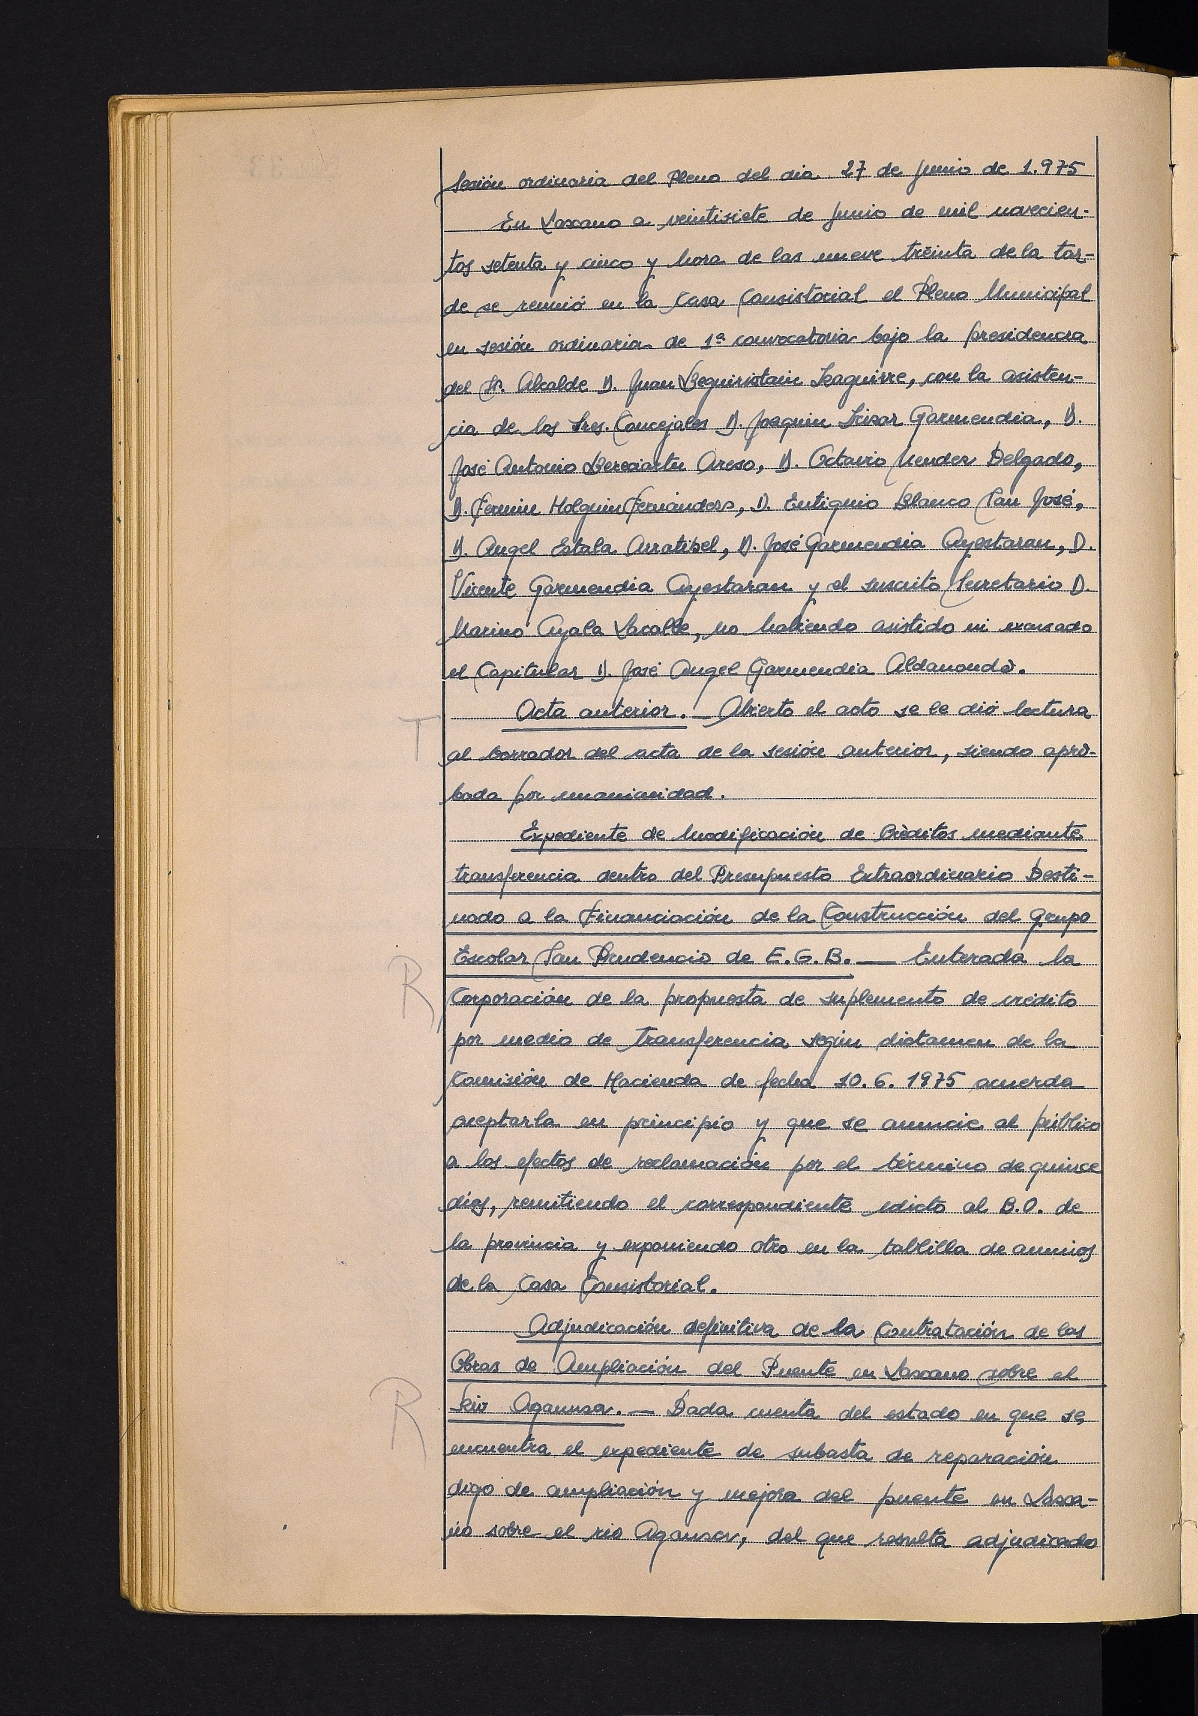 Sesión ordinaria del Pleno del dia 27 de Junio de 1.975
En Lazcano a veintisiete de Junio de mil novecien-
tos setenta y cinco y hora de las nueve treinta de la tar-
de se reunió en la Casa Consistorial el Pleno Municipal
en sesión ordinaria de 1ª convocatoria bajo la presidencia
del Sr. Alcalde D. Juan Beguiristain Izaguirre, con la asisten-
cia de los Sres. Concejales D. Joaquin Irizar Garmendia, D.
José Antonio Bereciartu Areso, D. Octavio Mendez Delgado,
D. Fermin Holguin Fernández, D. Eutiquio Blanco San José,
D. Angel Estala Arratibel, D. José Garmendia Ayestaran, D.
Vicente Garmendia Ayestaran y el suscrito Secretario D.
Marino Ayala Lacalle, no habiendo asistido ni excusado
el Capitular D. José Angel Garmendia Aldanondo.
T
Acta anterior. — Abierto el acto se le dió lectura
al borrador del acta de la sesión anterior, siendo apro-
bada por unanimidad.
Expediente de Modificación de Créditos mediante
transferencia dentro del Presupuesto Extraordinario Desti-
nado a la Financiación de la Construcción del Grupo
R
Escolar San Prudencio de E.G.B. — Enterada la
Corporación de la propuesta de suplemento de crédito
por medio de transferencia según dictamen de la
Comisión de Hacienda de fecha 10.6.1975 acuerda
aceptarla en principio y que se anuncie al público
a los efectos de reclamación por el término de quince
dias, remitiendo el correspondiente edicto al B.O. de
la provincia y exponiendo otro en la tablilla de anuncios
de la Casa Consistorial.
Adjudicación definitiva de la Contratación de las
Obras de Ampliación del Puente en Lazcano sobre el
R
Rio Agaunza. — Dada cuenta del estado en que se
encuentra el expediente de subasta de reparación
digo de ampliación y mejora del puente en Lazca-
no sobre el rio Agaunza, del que resulta adjudicado